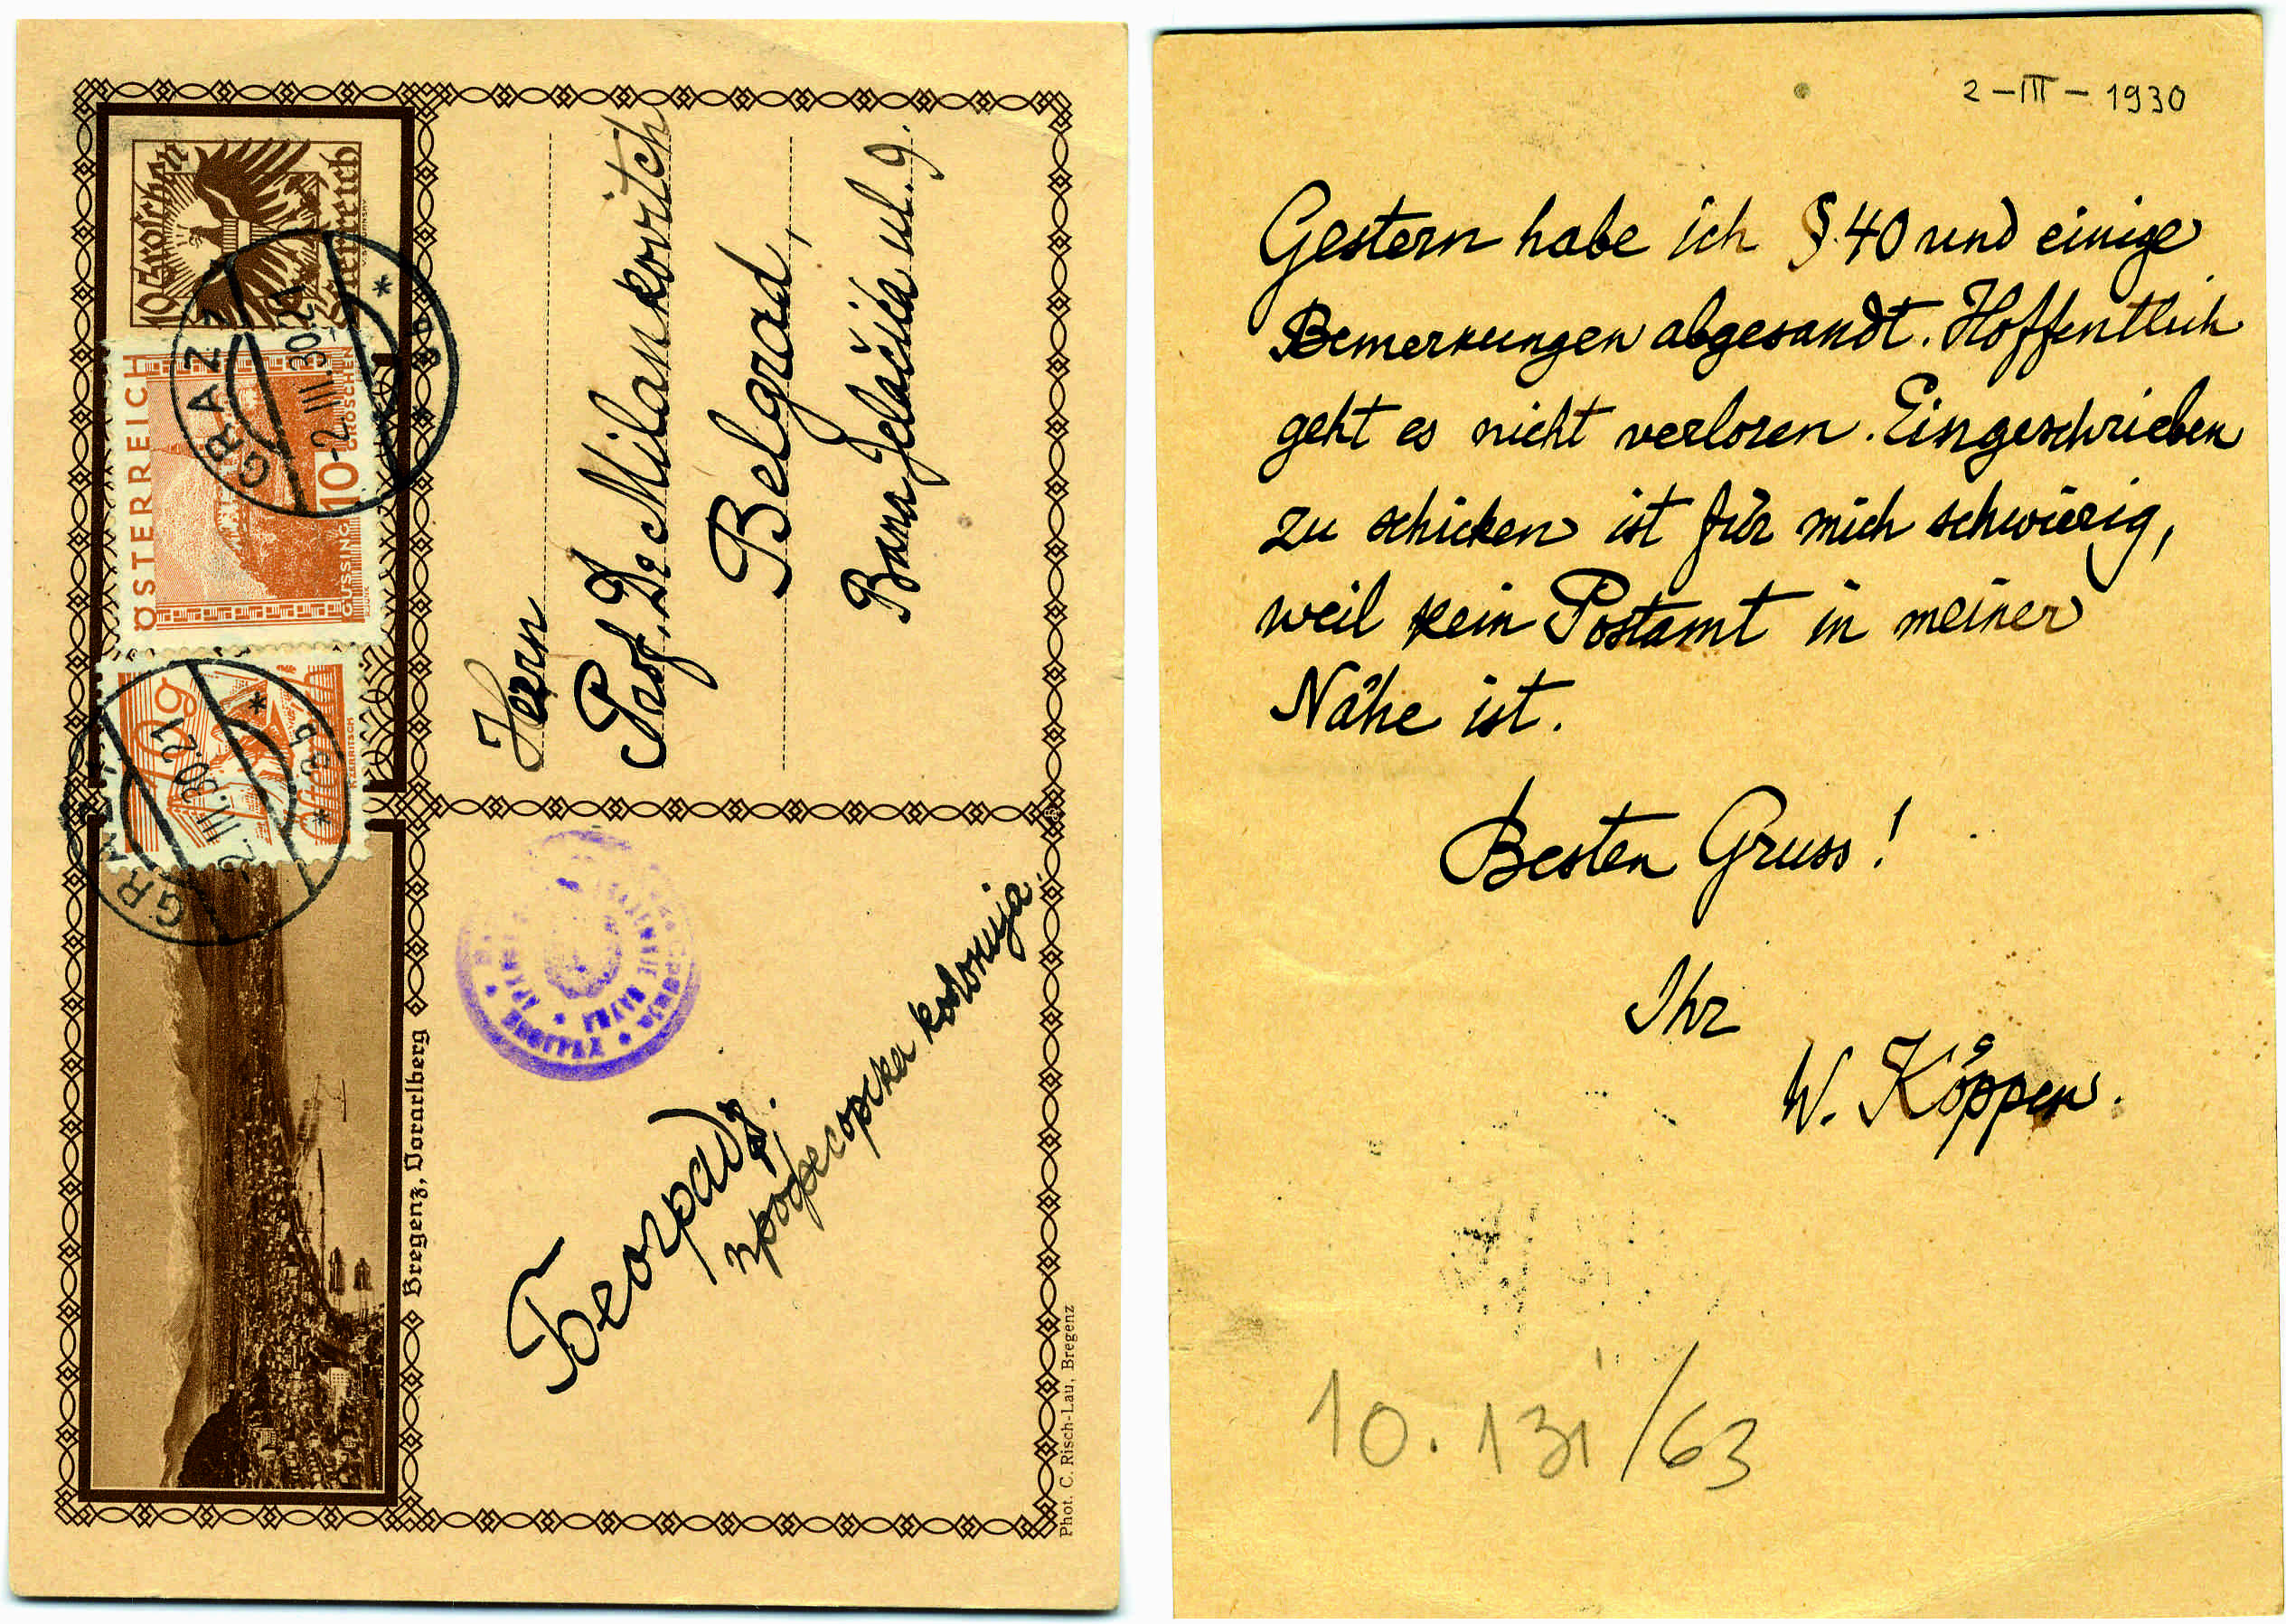 10 Groschen
Österreich
ÖSTERREICH
10 GROSCHEN
GÜSSING
10g
GRAZ
-2.III.30.21
* 9b *
GRAZ
-2.III.30.21
* 9b *
Herrn
Prof. Dr Milankovitch
Belgrad,
Bana Jelačića ul. 9.
Београд.
професорска kolonija.
Bregenz, Vorarlberg
Phot. C. Risch-Lau, Bregenz
2-III-1930
Gestern habe ich §.40 und einige
Bemerkungen abgesandt. Hoffentlich
geht es nicht verloren. Eingeschrieben
zu schicken ist für mich schwierig,
weil kein Postamt in meiner
Nähe ist.
Besten Gruss!
Ihr
W. Köppen.
10.131/63